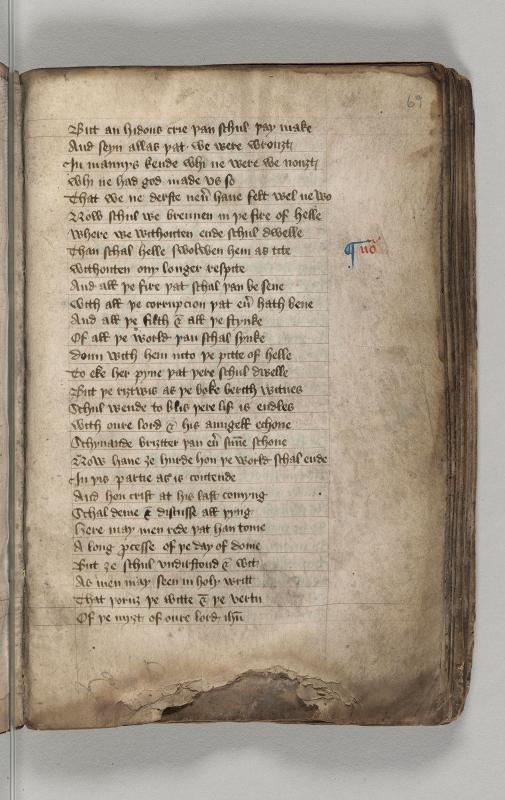 69
But an hidous crie þan schul þay make
And seyn allas þat we were wrouȝt
In mannys kende whi ne were we nouȝt
Whi ne had god made vs so
That we ne derste neuer haue felt wel ne wo
Now schul we brennen in þe fire of helle
Where we withouten ende schul dwelle
Than schal helle swolwen hem as tite
¶ Nō
Withouten ony longer respite
And all þe fire þat schal þan be sene
With all þe corrupcion þat euer hath bene
And all þe filth & all þe stynke
Of all þe world þan schal synke
Doun with hem into þe pitte of helle
To eke her pyne þat þere schul dwelle
But þe riȝtwis as þe boke berith witnes
Schul wende to blis þere lif is endles
With oure lord & his aungell echone
Schynande briȝtter þan euer sunne schone
Now haue ȝe hurde hou þe world schal ende
In þis partie as is contende
And hou crist at his last comyng
Schal deme & discusse all þyng
Here may men rede þat han tome
A long ꝓcesse of þe day of dome
But ȝe schul vndirstond & wit
As men may seen in holy writt
That þoruȝ þe witte & þe vertu
Of þe myȝt of oure lord ihū